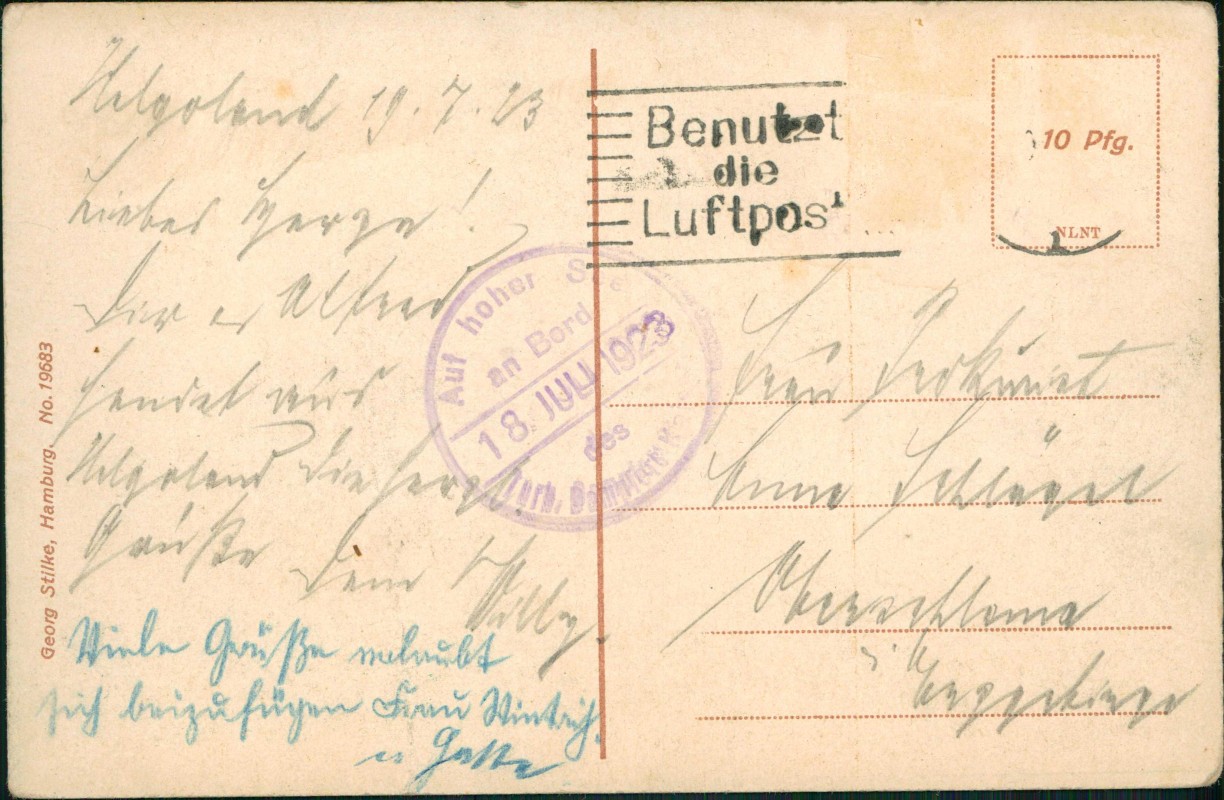 Helgoland 19.7.23
Liebes Herze!
Dir u Alfred
sendet aus
Helgoland die herzl.
Grüße Dein Willy.
Viele Grüße erlaubt
sich beizufügen Frau Wintrich
u Gatte
Georg Stilke, Hamburg. No. 19683
Benutzt
die
Luftpost
10 Pfg.
NLNT
Auf hoher See
an Bord
18. JULI 1923
des
Turb. Dampfers
Frau
Anna Schlegel
Oberschlema
i. Erzgebirge